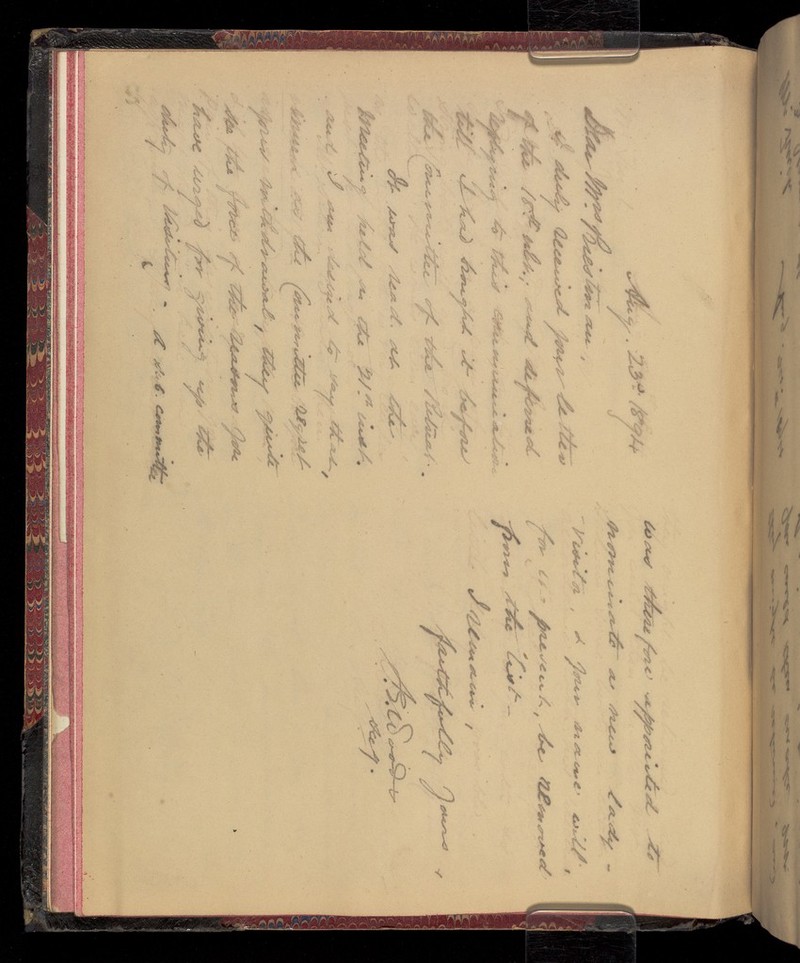 Aug. 23d 1894
Dear Mrs Priestman,
I duly received your letter
of the 10th ulto; and deferred
replying to this communication
till I had brought it before
the Committee of the Retreat.
It was read at the
Meeting held on the 21st inst.
and I am desired to say that,
whilst the Committee regret
your withdrawal, they quite
see the force of the reasons you
have urged for giving up the
duty of Visitor - A sub. committee
was therefore appointed to
nominate a new lady-
Visitor, & your name will,
for the present, be removed
from the list -
I remain,
faithfully yours,
Sec.y.